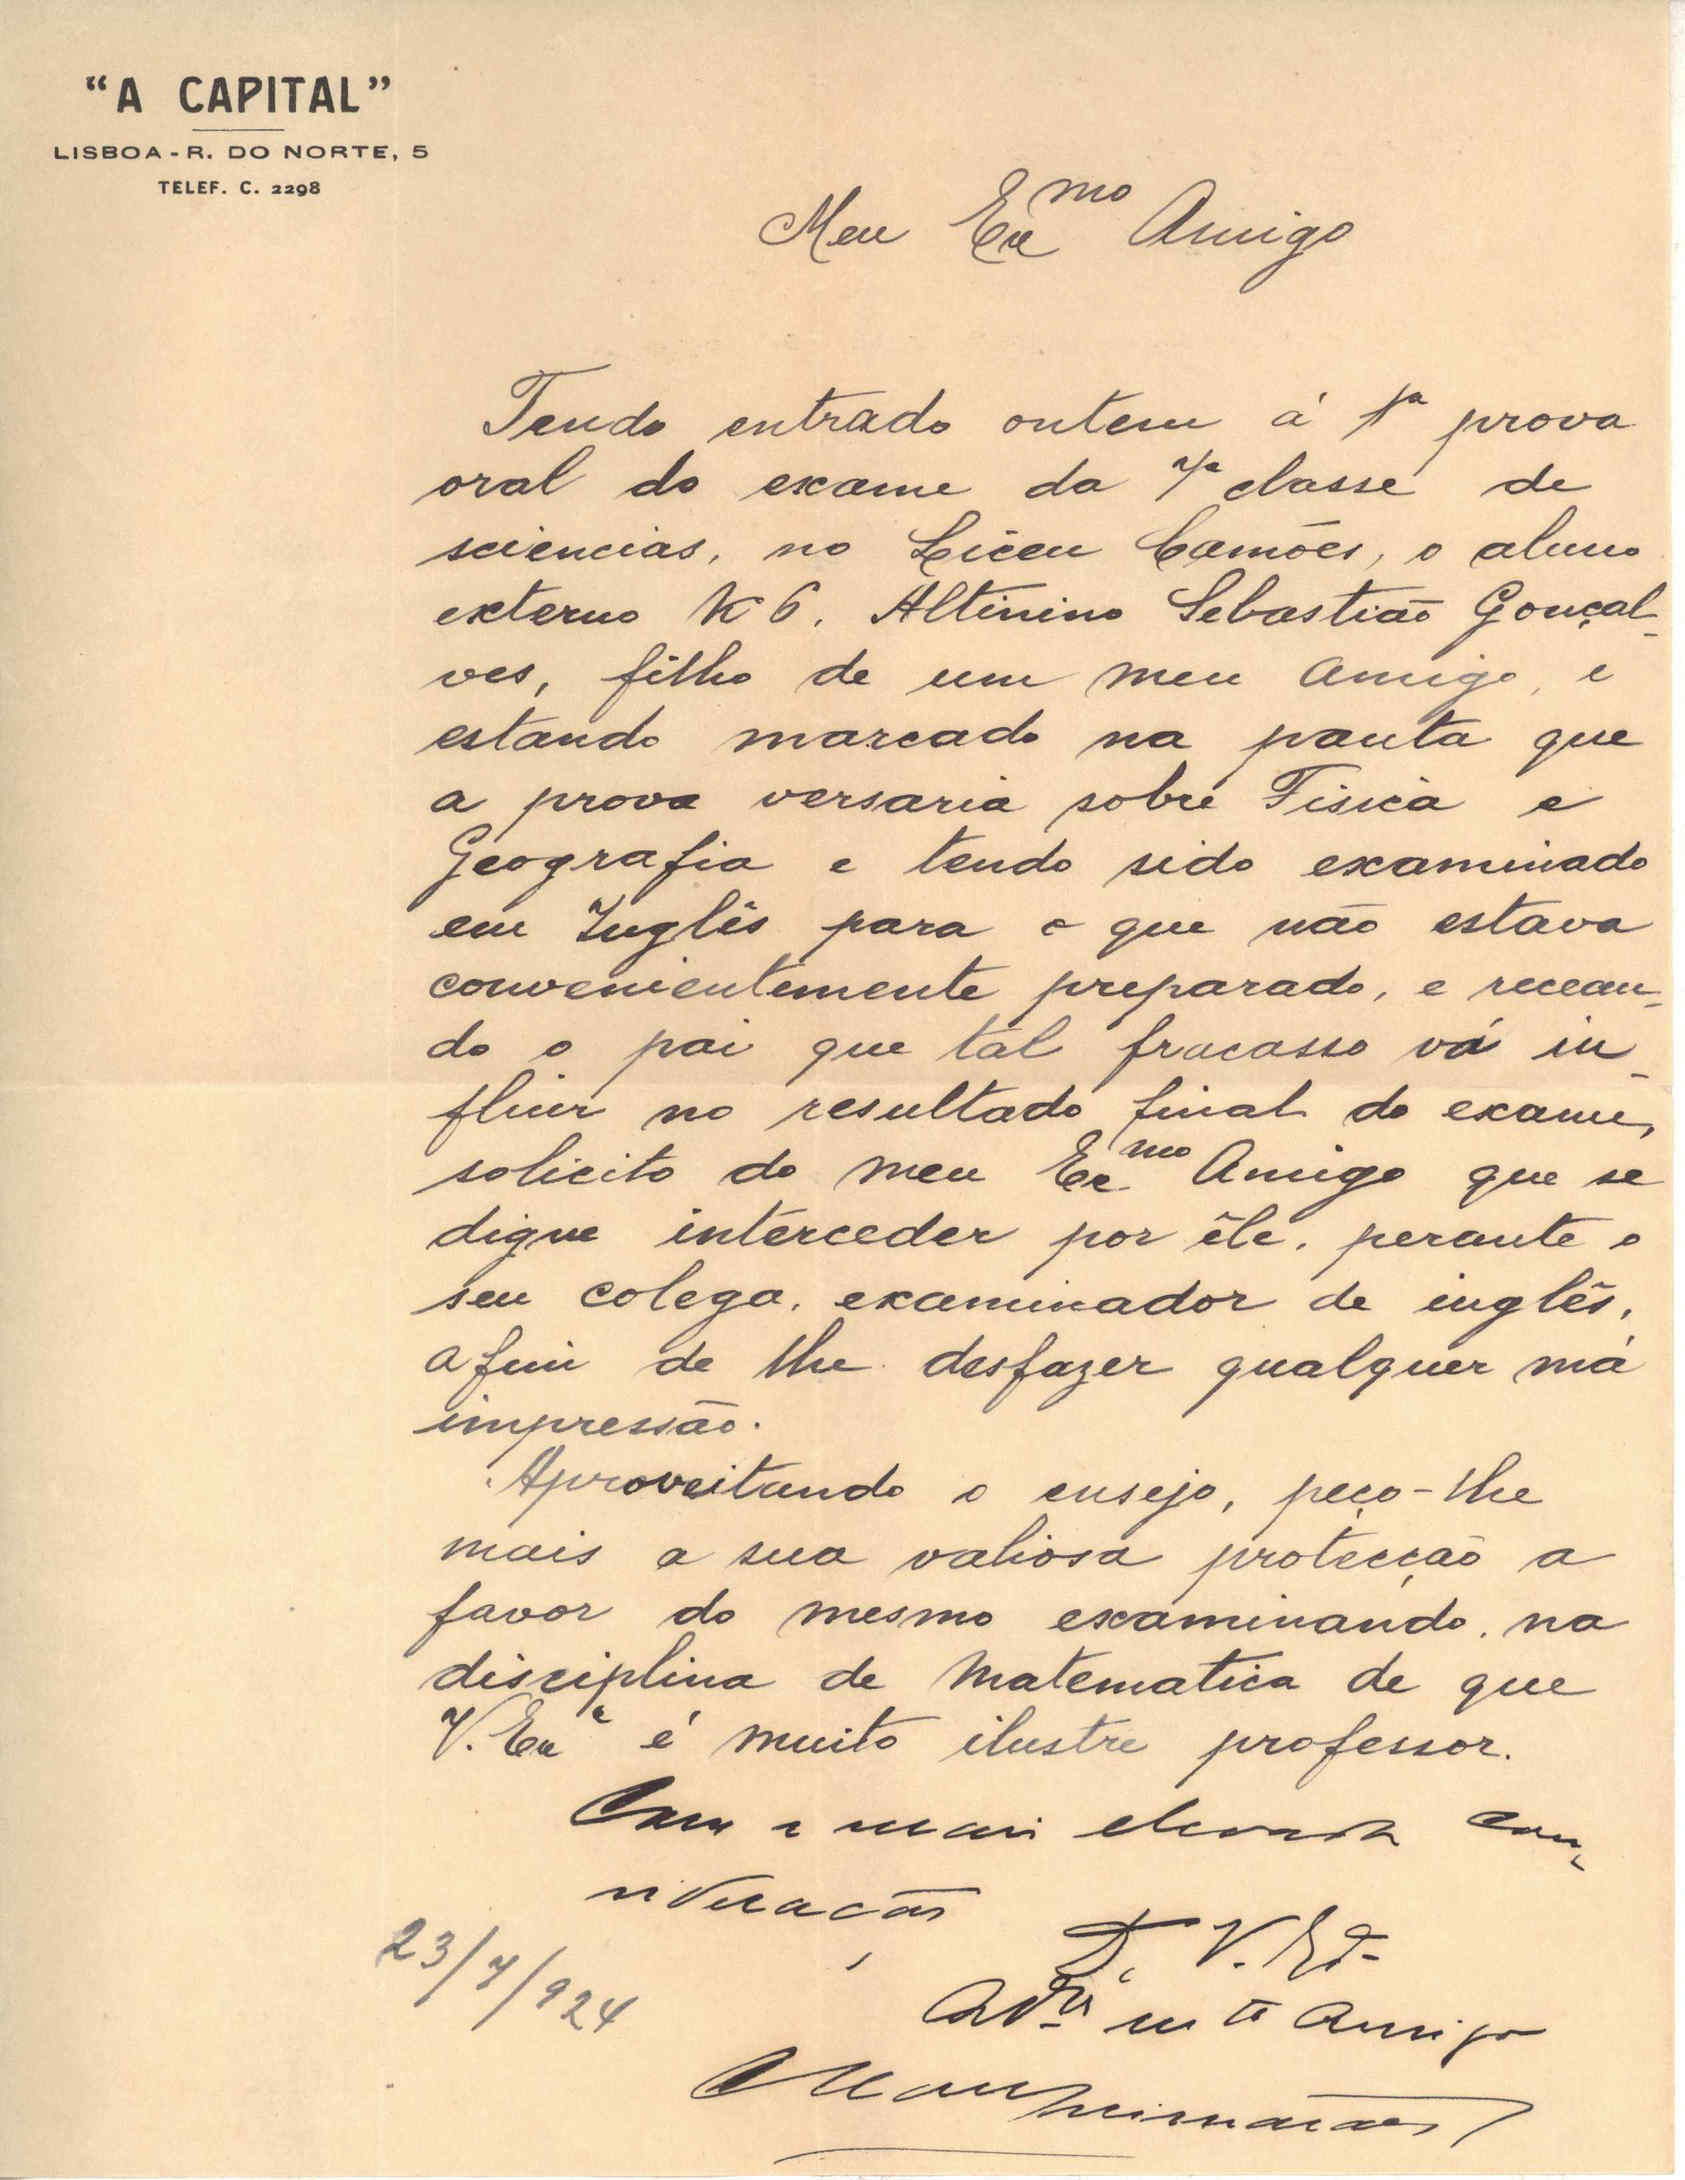 “A CAPITAL”
LISBOA - R. DO NORTE, 5
TELEF. C. 2298
Meu Exmo Amigo
Tendo entrado ontem á 1ª prova
oral do exame da 7ª classe de
sciencias, no Liceu Camões, o aluno
externo K 6, Altinino Sebastião Gonçal-
ves, filho de um meu amigo, e
estando marcado na pauta que
a prova versaria sobre Fisica e
Geografia e tendo sido examinado
em Inglês para o que não estava
convenientemente preparado, e recean-
do o pai que tal fracasso vá in-
fluir no resultado final do exame,
solicito do meu Exmo Amigo que se
digne interceder por êle, perante o
seu colega, examinador de inglês,
afim de lhe desfazer qualquer má
impressão.
Aproveitando o ensejo, peço-lhe
mais a sua valiosa protecção a
favor do mesmo examinando, na
disciplina de Matematica de que
V. Exª é muito ilustre professor.
Com a mais elevada con-
sideração,
D. V. Exª
23/7/924
mto amigo
Guimarães